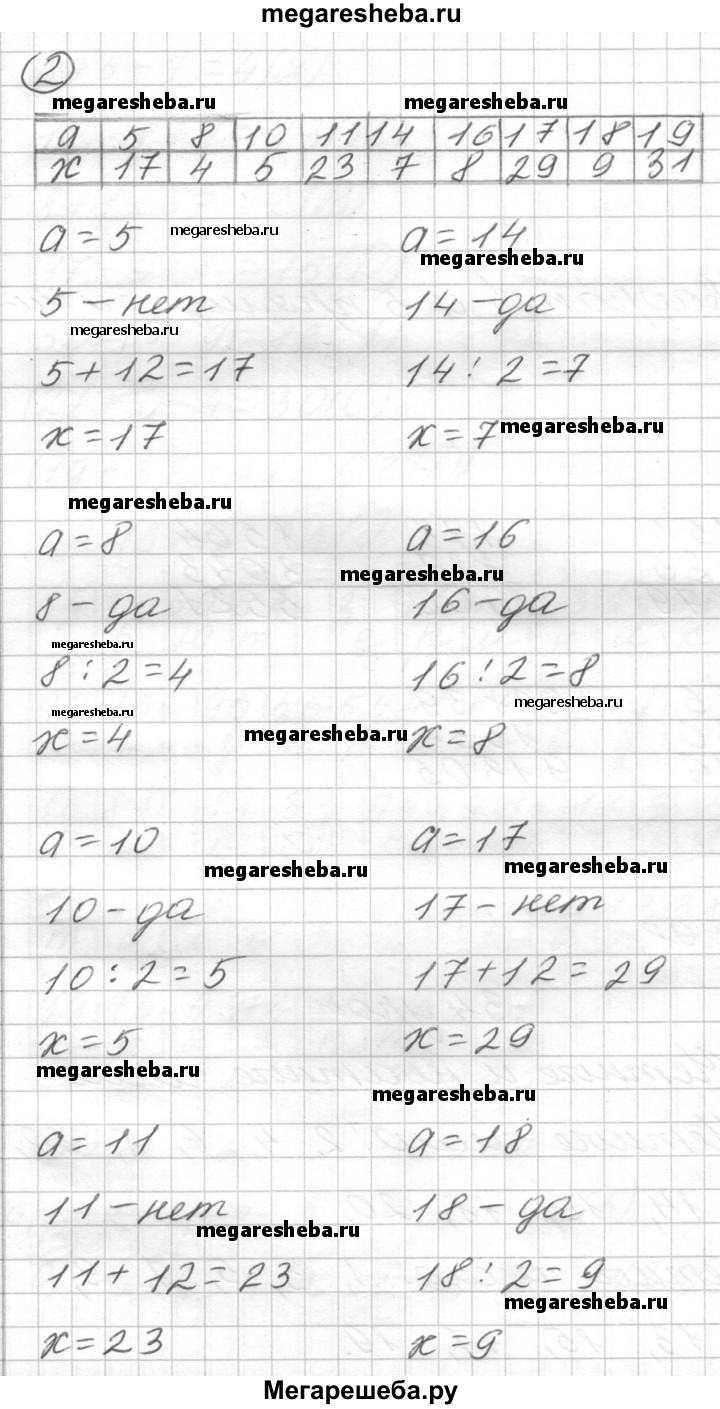 megaresheba.ru
2
megaresheba.ru megaresheba.ru
a 5 8 10 11 14 16 17 18 19
x 17 4 5 23 7 8 29 9 31
a = 5 megaresheba.ru a = 14
megaresheba.ru
5 - нет 14 - да
megaresheba.ru
5 + 12 = 17 14 : 2 = 7
x = 17 x = 7 megaresheba.ru
megaresheba.ru
a = 8 a = 16
megaresheba.ru
8 - да 16 - да
megaresheba.ru
8 : 2 = 4 16 : 2 = 8
megaresheba.ru
megaresheba.ru
x = 4 megaresheba.ru x = 8
a = 10 a = 17
megaresheba.ru megaresheba.ru
10 - да 17 - нет
10 : 2 = 5 17 + 12 = 29
x = 5 x = 29
megaresheba.ru
megaresheba.ru
a = 11 a = 18
11 - нет 18 - да
megaresheba.ru
11 + 12 = 23 18 : 2 = 9
megaresheba.ru
x = 23 x = 9
Мегарешеба.ру